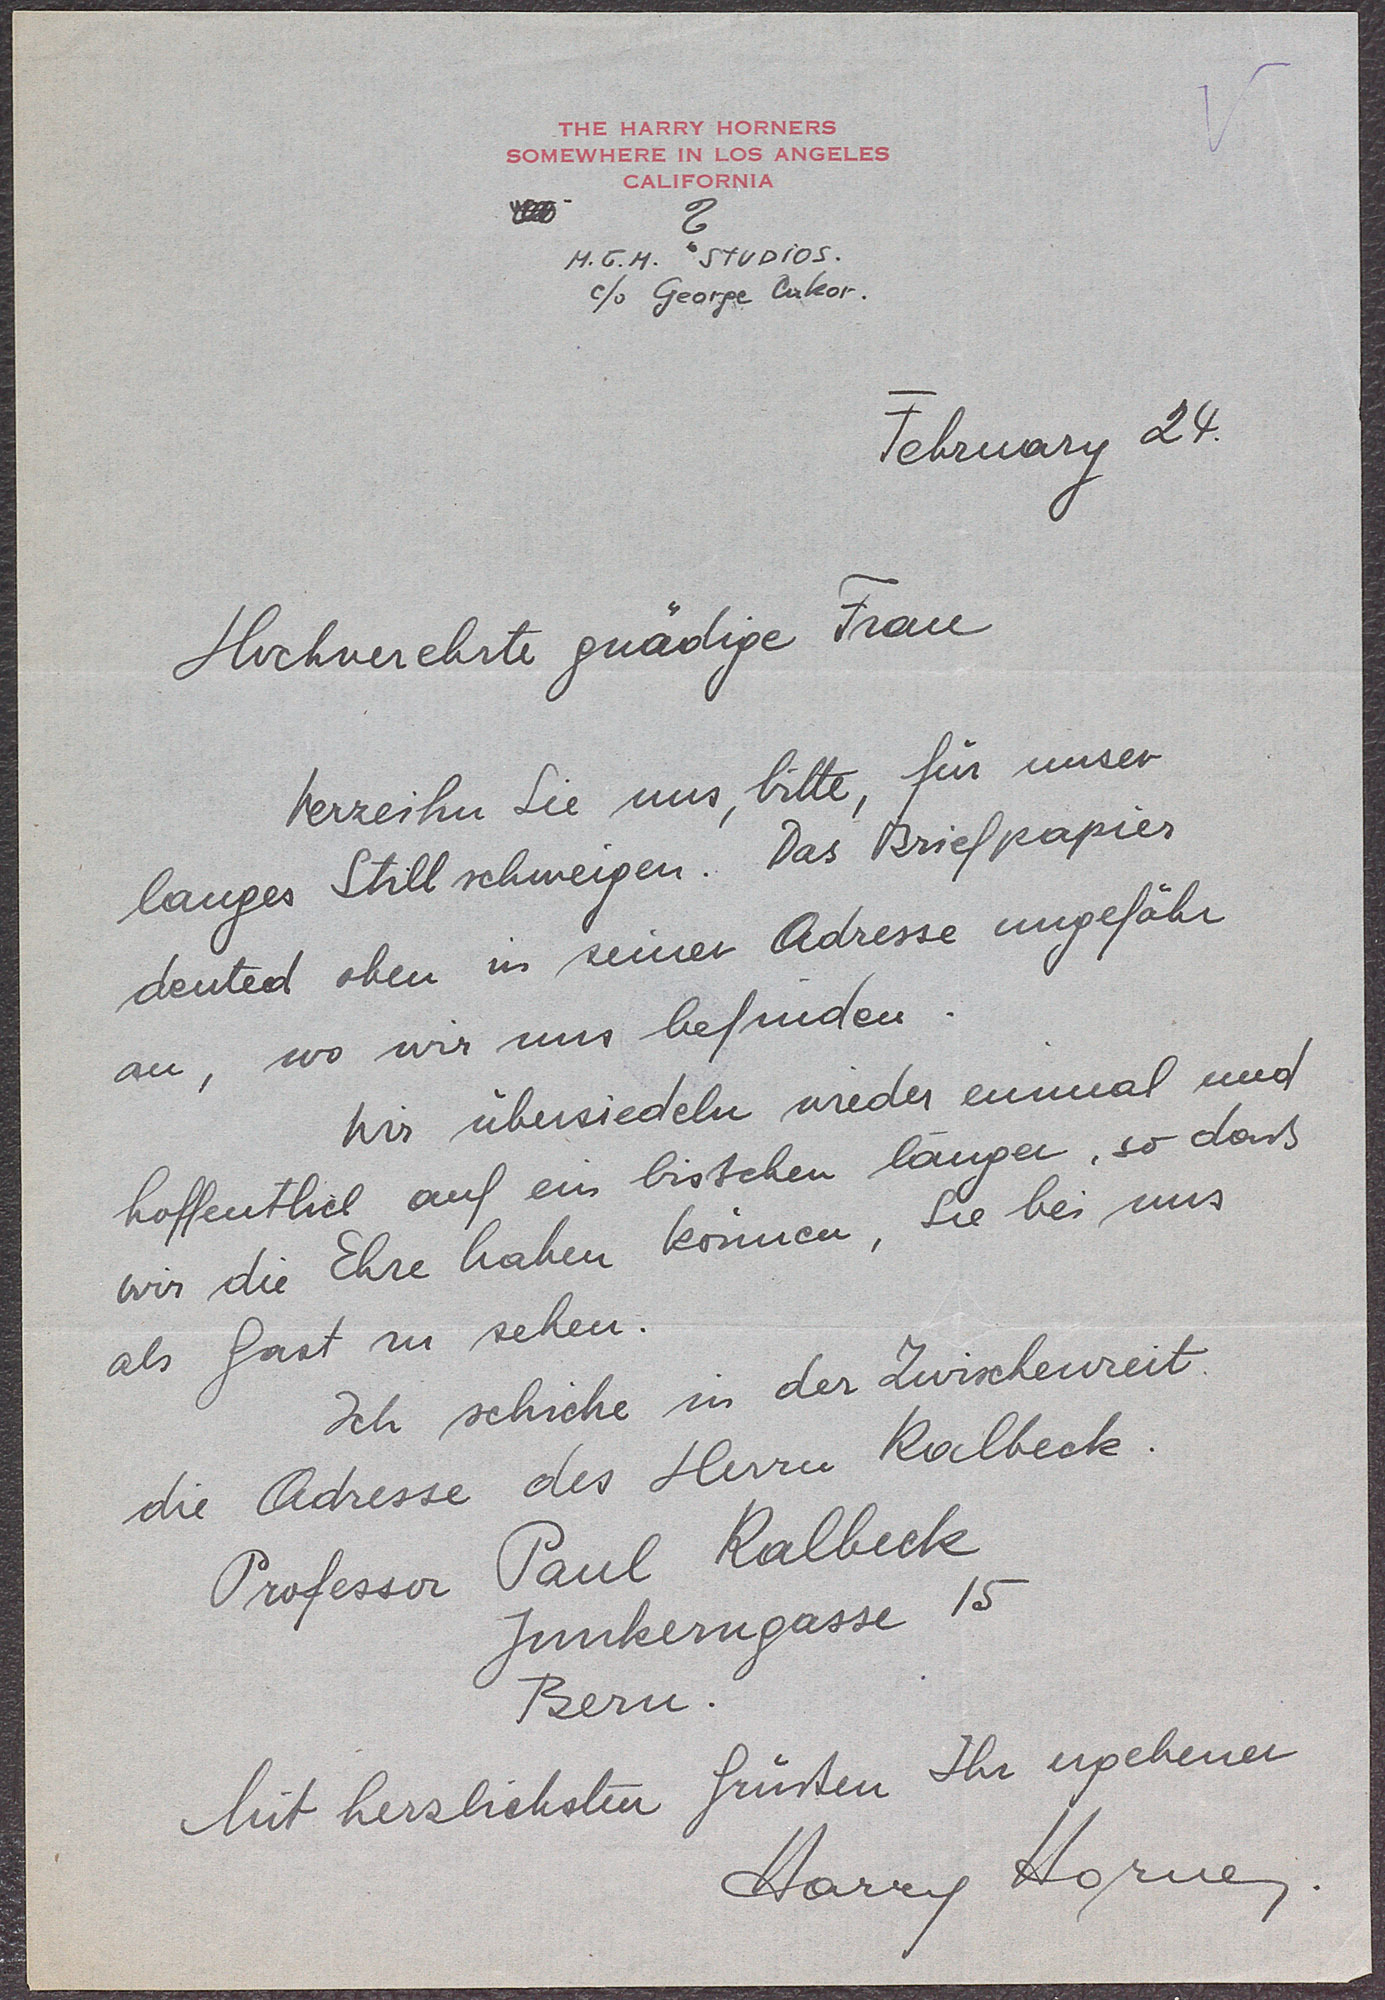 THE HARRY HORNERS
SOMEWHERE IN LOS ANGELES
CALIFORNIA
M.G.M. STUDIOS.
c/o George Cukor.
February 24.
Hochverehrte gnädige Frau
Verzeihn Sie uns, bitte, für unser
langes Stillschweigen. Das Briefpapier
deuted oben in seiner Adresse ungefähr
an, wo wir uns befinden.
Wir übersiedeln wieder einmal und
hoffentlich auf ein bisschen länger, so dass
wir die Ehre haben können, Sie bei uns
als Gast zu sehen.
Ich schicke in der Zwischenzeit
die Adresse des Herrn Kalbeck.
Professor Paul Kalbeck
Junkerngasse 15
Bern.
Mit herzlichsten Grüßen Ihr ergebener
Harry Horner.